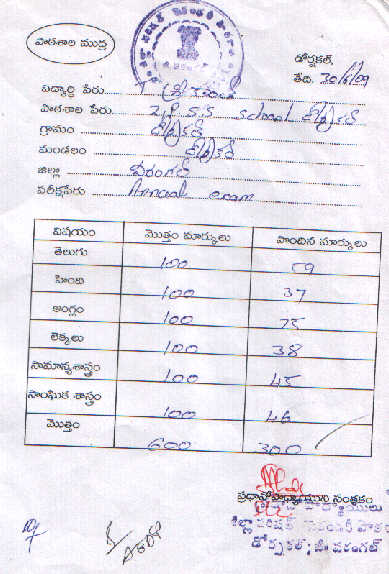 పాఠశాల ముద్ర
డోర్నకల్,
తేది. 30/6/09
విద్యార్థి పేరు
పాఠశాల పేరు. Z.P.S.S. school డోర్నకల్
గ్రామం డోర్నకల్
మండలం డోర్నకల్
జిల్లా వరంగల్
పరీక్షపేరు Annual exam
విషయం మొత్తం మార్కులు పొందిన మార్కులు
తెలుగు 100 59
హింది 100 37
ఆంగ్లం 100 75
లెక్కలు 100 38
సామాన్యశాస్త్రం 100 45
సాంఘిక శాస్త్రం 100 46
మొత్తం 600 300
ప్రధానోపాధ్యాయుని సంతకం
డోర్నకల్, జి. వరంగల్